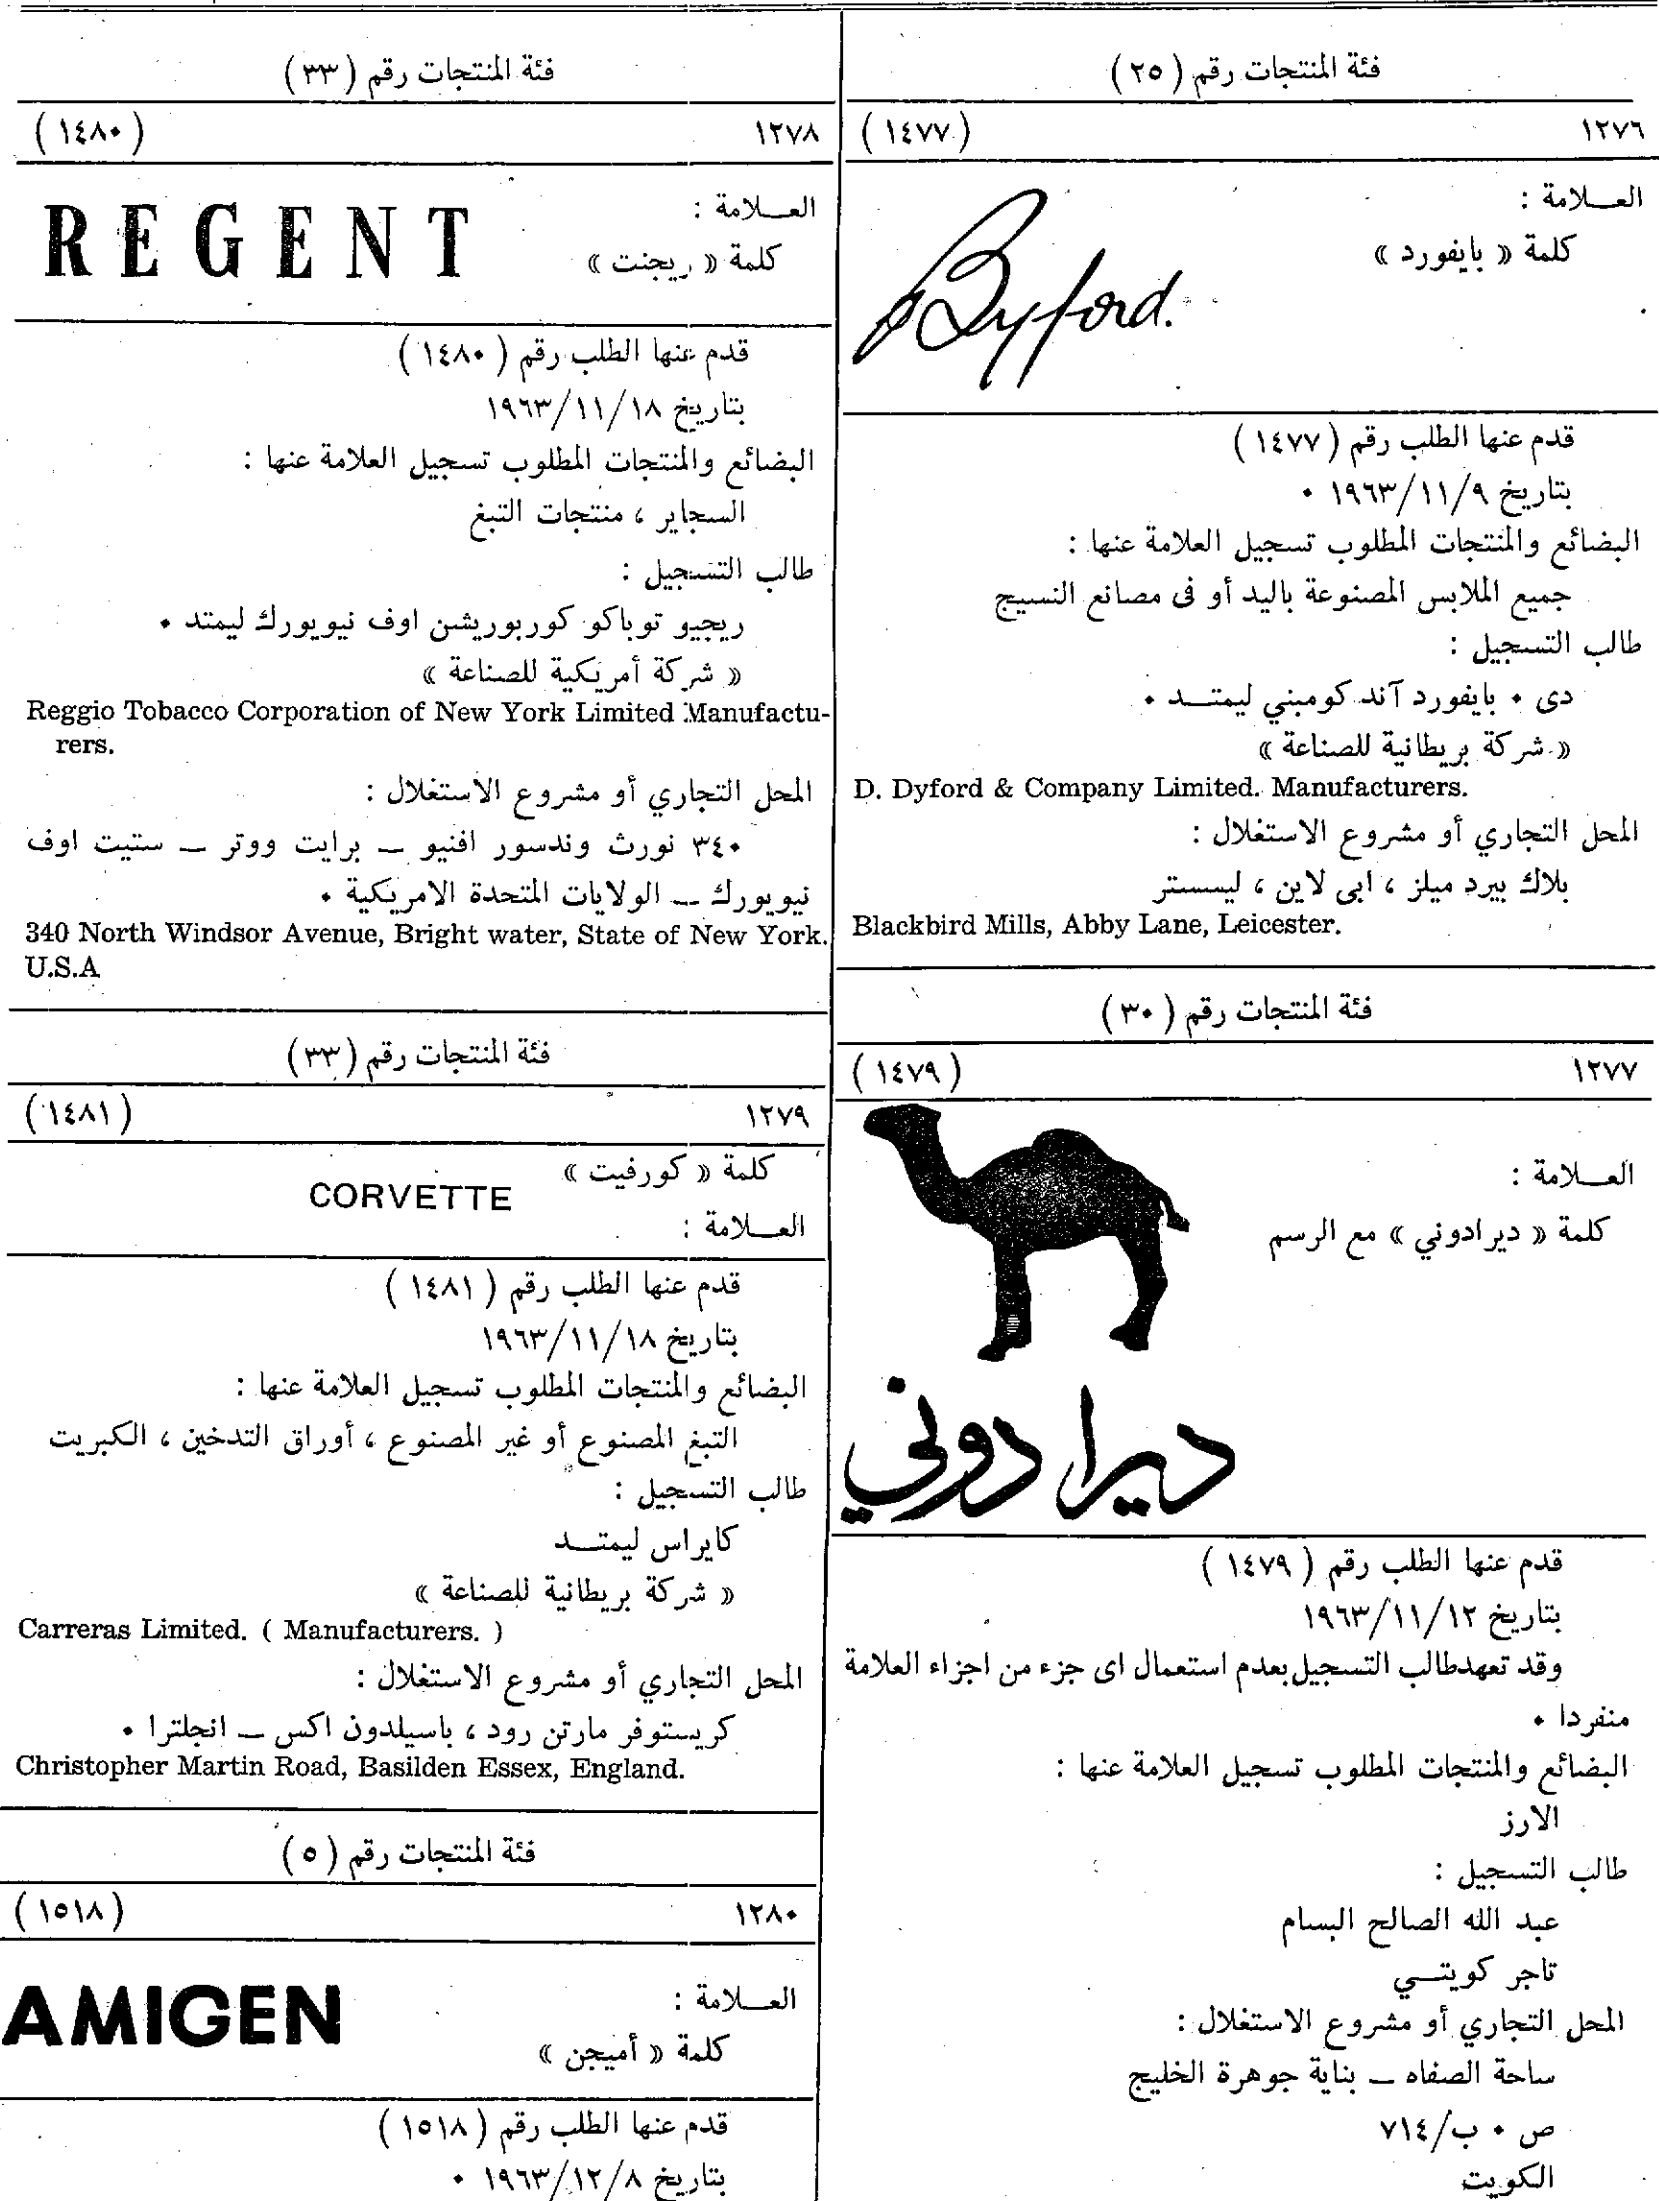 فئة المنتجات رقم ( ٢٥ )
١٢٧٦ ( ١٤٧٧ )
العـــلامة :
كلمة « بايفورد »
Byford.
قدم عنها الطلب رقم ( ١٤٧٧ )
بتاريخ ١٩٦٣/١١/٩ ٠
البضائع والمنتجات المطلوب تسجيل العلامة عنها :
جميع الملابس المصنوعة باليد أو فى مصانع النسيج
طالب التسجيل :
دى ٠ بايفورد آند كومبني ليمتـــد ٠
« شركة بريطانية للصناعة »
D. Dyford & Company Limited. Manufacturers.
المحل التجاري أو مشروع الاستغلال :
بلاك بيرد ميلز ، ابى لاين ، ليسستر
Blackbird Mills, Abby Lane, Leicester.
فئة المنتجات رقم ( ٣٠ )
١٢٧٧ ( ١٤٧٩ )
العـــلامة :
كلمة « ديرادوني » مع الرسم
ديرا دوني
قدم عنها الطلب رقم ( ١٤٧٩ )
بتاريخ ١٩٦٣/١١/١٢
وقد تعهدطالب التسجيل بعدم استعمال اى جزء من اجزاء العلامة
منفردا ٠
البضائع والمنتجات المطلوب تسجيل العلامة عنها :
الارز
طالب التسجيل :
عبد الله الصالح البسام
تاجر كويتـــي
المحل التجاري أو مشروع الاستغلال :
ساحة الصفاه ــ بناية جوهرة الخليج
ص ٠ ب/٧١٤
الكويت
فئة المنتجات رقم ( ٣٣ )
١٢٧٨ ( ١٤٨٠ )
العـــلامة :
كلمة « ريجنت »
REGENT
قدم عنها الطلب رقم ( ١٤٨٠ )
بتاريخ ١٩٦٣/١١/١٨
البضائع والمنتجات المطلوب تسجيل العلامة عنها :
السجاير ، منتجات التبغ
طالب التسجيل :
ريجيو توباكو كوربوريشن اوف نيويورك ليمتد ٠
« شركة أمريكية للصناعة »
Reggio Tobacco Corporation of New York Limited Manufactu-
rers.
المحل التجاري أو مشروع الاستغلال :
٣٤٠ نورث وندسور افنيو ــ برايت ووتر ــ ستيت اوف
نيويورك ــ الولايات المتحدة الامريكية ٠
340 North Windsor Avenue, Bright water, State of New York.
U.S.A
فئة المنتجات رقم ( ٣٣ )
١٢٧٩ ( ١٤٨١ )
كلمة « كورفيت »
CORVETTE
العـــلامة :
قدم عنها الطلب رقم ( ١٤٨١ )
بتاريخ ١٩٦٣/١١/١٨
البضائع والمنتجات المطلوب تسجيل العلامة عنها :
التبغ المصنوع أو غير المصنوع ، أوراق التدخين ، الكبريت
طالب التسجيل :
كايراس ليمتـــد
« شركة بريطانية للصناعة »
Carreras Limited. ( Manufacturers. )
المحل التجاري أو مشروع الاستغلال :
كريستوفر مارتن رود ، باسيلدون اكس ــ انجلترا ٠
Christopher Martin Road, Basilden Essex, England.
فئة المنتجات رقم ( ٥ )
١٢٨٠ ( ١٥١٨ )
العـــلامة :
كلمة « أميجن »
AMIGEN
قدم عنها الطلب رقم ( ١٥١٨ )
بتاريخ ١٩٦٣/١٢/٨ ٠